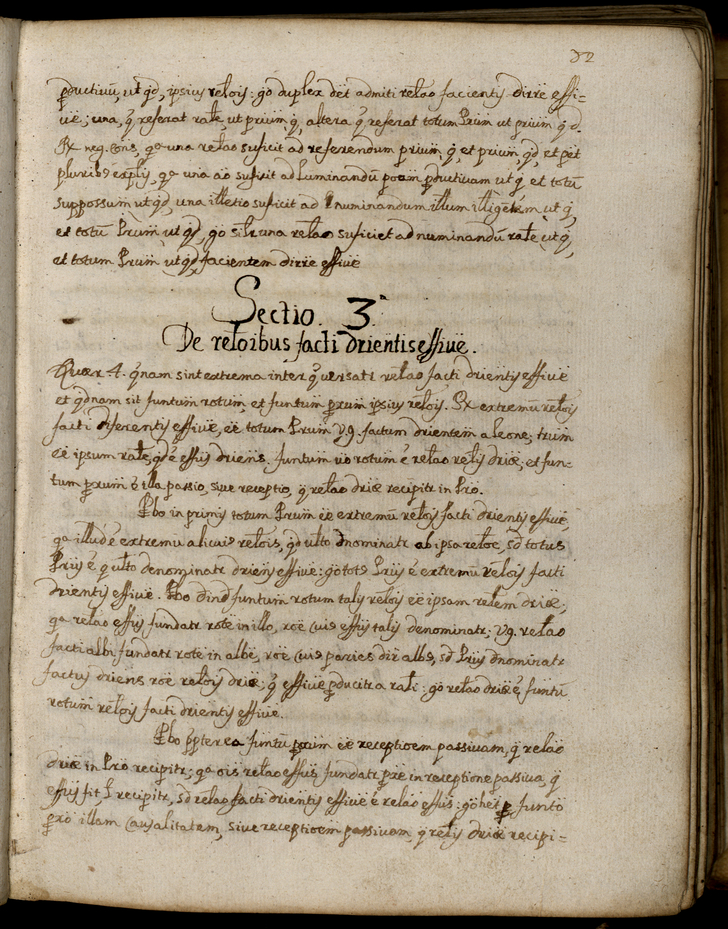 82
pductivũ, ut qd, ipsius reloĩs: go duplex dẽt admiti relao facientis dirrẽ effi-
vẽ; una, q̃ referat ratẽ, ut prium q̃, altera q̃ referat totum Prium ut prium qd.
Rx neg. cons, qa una relao suficit ad referendum prium q̃, et prium qd, et põt
pluribs explĩ, qa una ao sufisit ad luminandũ poam pductivam ut q̃ et totũ
suppossum ut qd, una illetio suficit ad numinandum illum ut q̃,
et totũ Prium ut qd, go silr una relao suficiet ad numinandũ ratẽ ut q̃,
et totum Prium ut qd facientem dirrẽ effivẽ
Sectio. 3ª
De reloibus facti drientis effivẽ.
Quær 4. q̃nam sint extrema inter q̃ versatr relao facti drientis effivẽ
et qdnam sit funtum rotum, et funtum prxum ipsius relois. Rx extremũ relois
facti diferentis effivẽ, ẽẽ totum Prium vg. factum drientem a leone; trium
ẽẽ ipsum ratẽ, qd ẽ effus driens. funtum vo rotum ẽ relao relis driæ, et fun-
tum prxum ẽ illa passio, sive receptio, q̃ relao driæ recipitr in Prio.
Pbo in primis totum Prium ẽẽ extremũ relois facti drientis effivẽ,
qa illud ẽ extremũ alicuis relois, qd ulto dnominatr ab ipsa reloe, sd totus
Prius ẽ q ulto denominatr driens effivẽ: go tots Prius ẽ extremũ relois facti
drientis effivẽ. Pbo dind funtum rotum talis relois ẽẽ ipsam relem driæ;
qa relao effus fundatr rotẽ in illo, roẽ cuis effus talis denominatr; vg. relao
facti albi fundatr rotẽ in albẽ, roẽ cuis paries dir albs, sd Prius dnominatr
factus driens roẽ relois driæ; q̃ effivẽ pducitr a ratĩ: go relao driæ ẽ, funtũ
rotum relois facti drientis effivẽ.
Pbo ppterea funtũ prxum ẽẽ receptioem passivam, q̃ relao
driæ in Prio recipitr; qa ois relao effus fundatr prxẽ in receptione passiva, q̃
effus fit, l recipitr, sd relao facti drientis effivẽ ẽ relao effus: go het p funto
prxo illam causalitatem, sive receptioem passivam, q̃ relis driæ recipi=